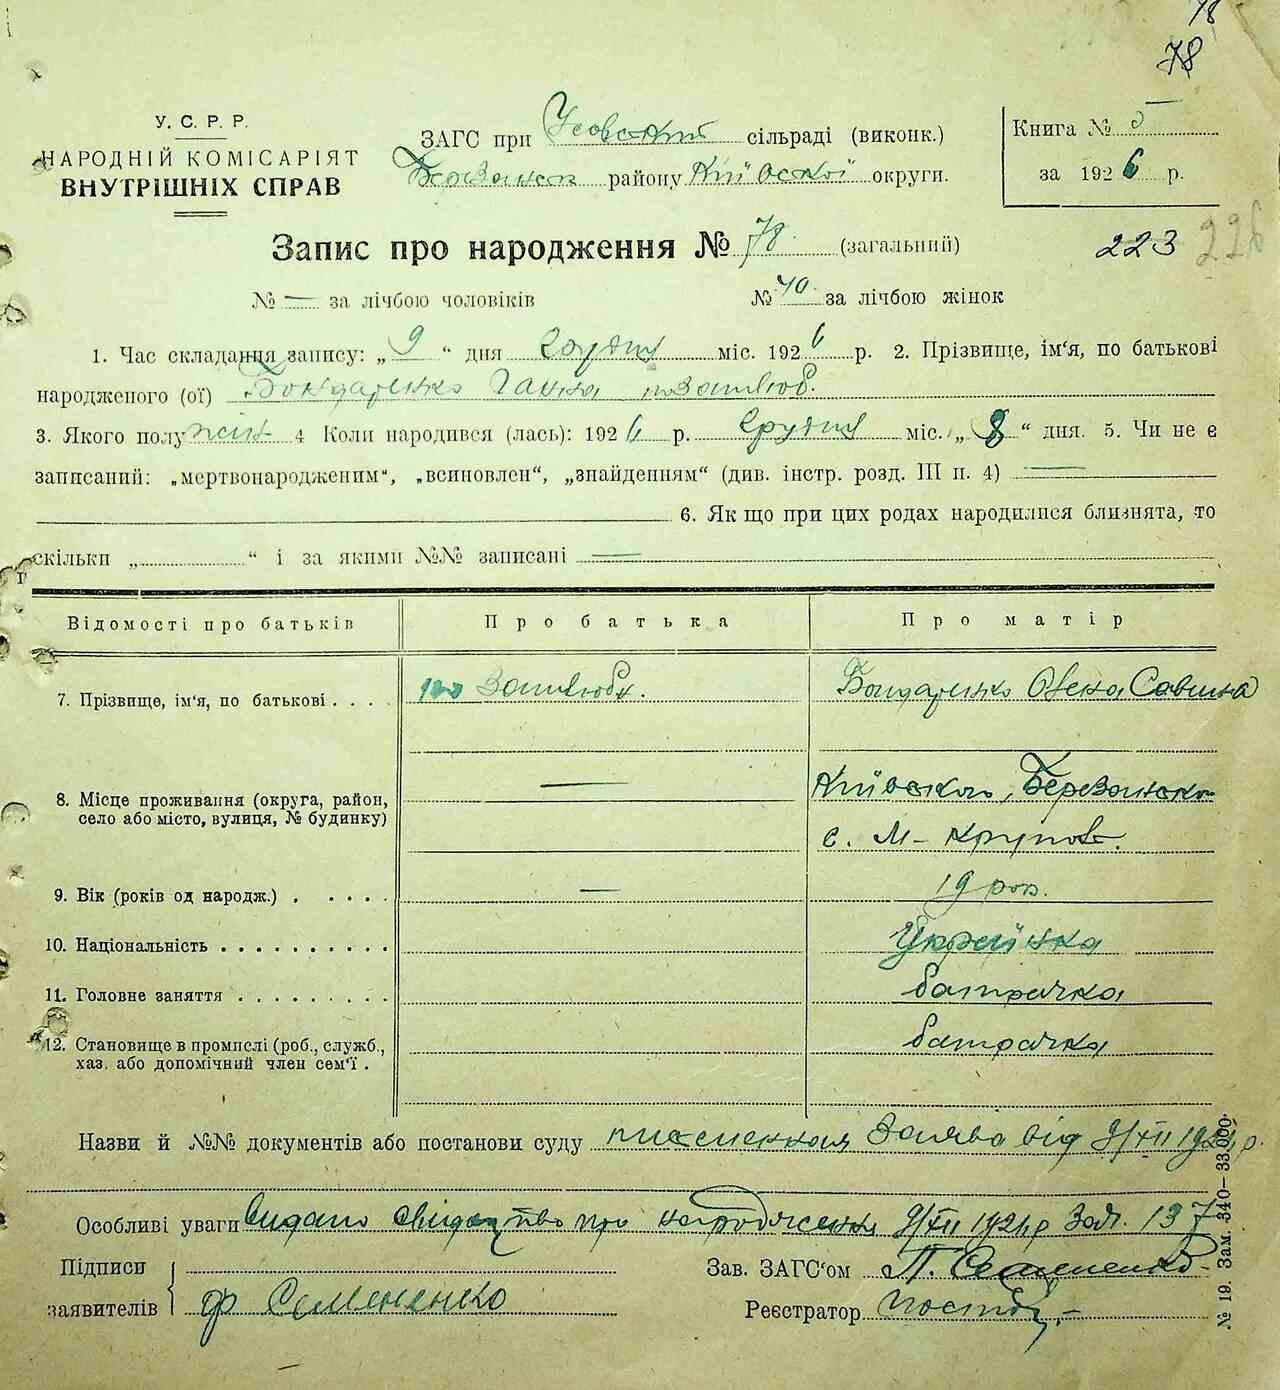 78
78
У. С. Р. Р.
НАРОДНІЙ КОМІСАРІЯТ
ВНУТРІШНІХ СПРАВ
ЗАГС при сільраді (виконк.)
району Київскої округи.
Книга №
за 1926 р.
Запис про народження № 78. (загальний)
223 226
№ — за лічбою чоловіків
№ 40. за лічбою жінок
1. Час складання запису: „ 9 “ дня грудня міс. 1926 р. 2. Прізвище, ім'я, по батькові
народженого (ої) Бондаренко Ганна
3. Якого полу жін. 4 Коли народився (лась): 1926 р. грудня міс. „ 8 “ дня. 5. Чи не є
записаний: „мертвонародженим“, „всиновлен“, „знайденням“ (див. інстр. розд. III п. 4) —
6. Як що при цих родах народилися близнята, то
скільки „ “ і за якими №№ записані —
Відомості про батьків
Про батька
Про матір
7. Прізвище, ім'я, по батькові . . . .
Бондаренко Олена Савична
8. Місце проживання (округа, район,
село або місто, вулиця, № будинку)
—
Київського, Березанського
с. М-Крупол.
9. Вік (років од народж.) . . . . .
—
19 рок.
10. Національність . . . . . . . . . .
Українка
11. Головне заняття . . . . . . . . .
батрачка
12. Становище в промислі (роб., служб.,
хаз. або допомічний член сем'ї .
батрачка
Назви й №№ документів або постанови суду письменная заява від 9/XII 1926 р.
Особливі уваги Видано свідоцтво про народження 9/XII 1926 р за № 137
Підписи
заявителів
Семененко
Зав. ЗАГС'ом
Реєстратор
№ 19. Зам. 340—33.000.